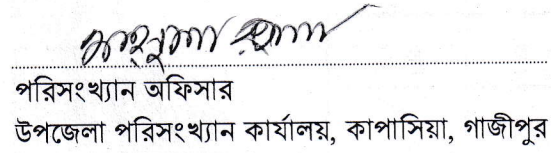 পরিসংখ্যান অফিসার
উপজেলা পরিসংখ্যান কার্যালয়, কাপাসিয়া, গাজীপুর